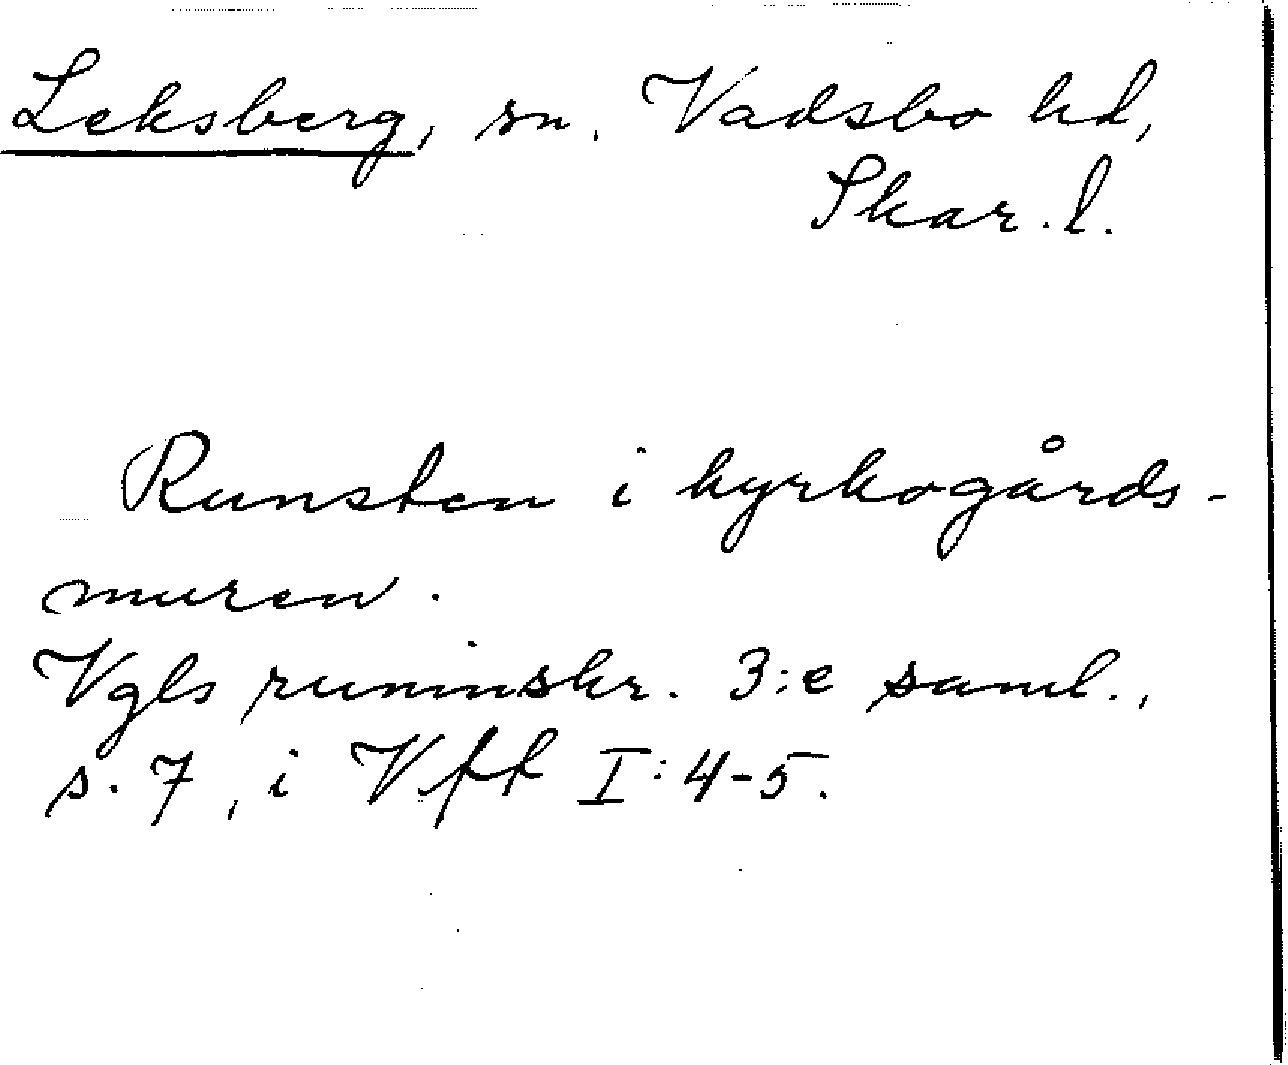 Leksberg, sn. Vadsbo hd,
Skar. l.
Runsten i kyrkogårds-
muren.
Vgls runinskr. 3:e saml.,
s. 7, i Vfft I:4-5.